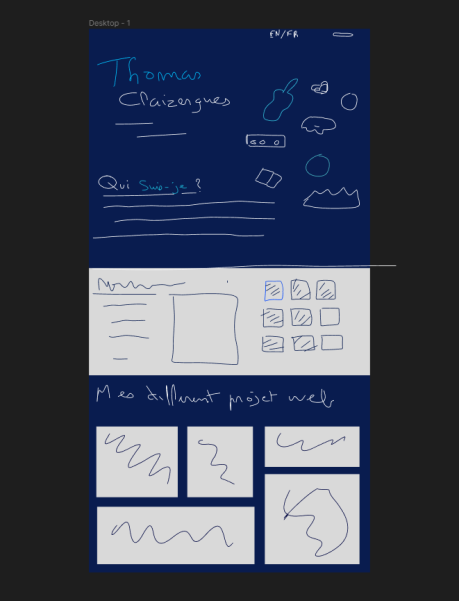 Desktop - 1
EN/FR
Thomas
Claizergues
Qui suis-je ?
Mes different projet web